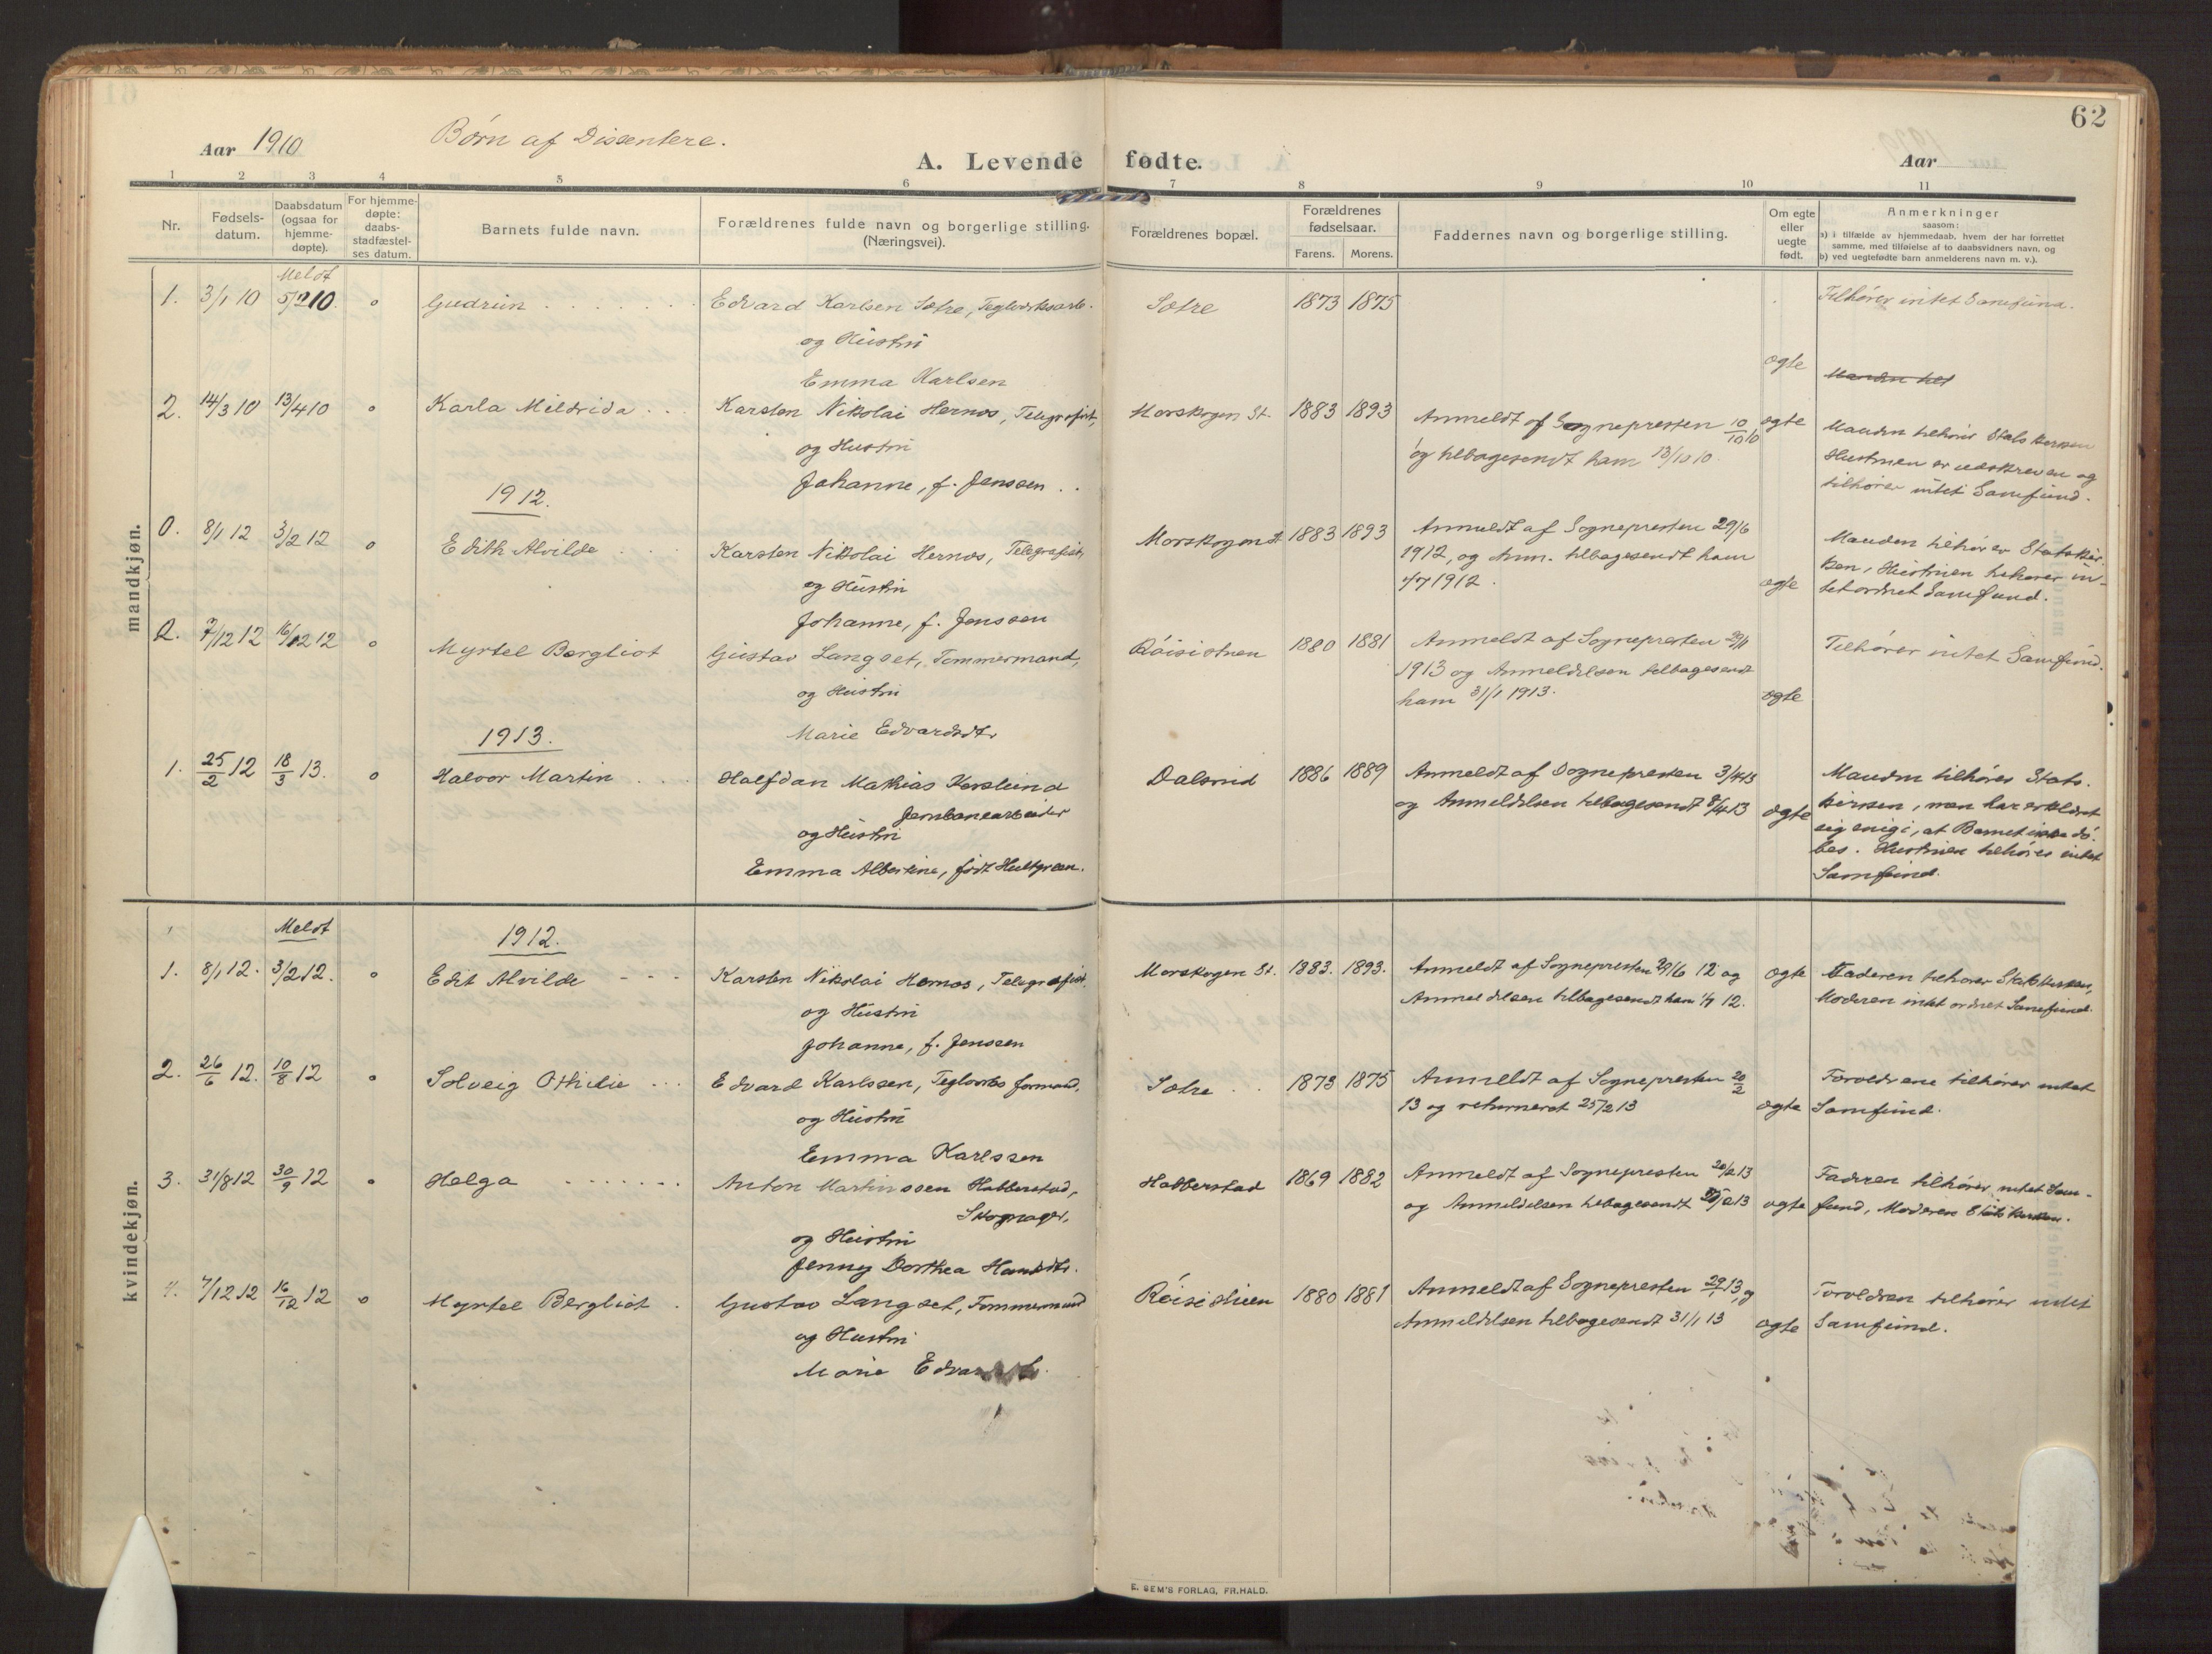 62
Aar 1910
Børn af Dissentere.
A. Levende fødte.
Aar
1 2 3 4 5 6 7 8 9 10 11
Nr.
Fødsels-
datum.
Daabsdatum
(ogsaa for
hjemme-
døpte).
For hjemme-
døpte:
daabs-
stadfæstel-
ses datum.
Barnets fulde navn.
Forældrenes fulde navn og borgerlige stilling.
(Næringsvei).
Forældrenes bopæl.
Forældrenes
fødselsaar.
Farens. Morens.
Faddernes navn og borgerlige stilling.
Om egte
eller
uegte
født.
Anmerkninger
saasom:
a) i tilfælde av hjemmedaab, hvem der har forrettet
samme, med tilføielse af to daabsvidners navn, og
b) ved uegtefødte barn anmelderens navn m. v.).
mandkjøn.
Meldt
1. 3/1 10 5/2 10. o Gudrun Edvard Karlsen Sætre, Teglverksarb. Sætre 1873 1875 Tilhører intet Samfund.
og Hustru
Emma Karlsen
ægte
2. 14/3 10 13/4 10 o Karla Mildrida Karsten Nikolai Hernæs, Telegrafist, Morskogen St. 1883 1893 Anmeldt af Sognepresten 10/10 10 ægte Manden tilhører Statskirken
og Hustru og tilbagesendt ham 13/10 10. Hustruen er udskreven og
Johanne, f. Jenssen tilhører intet Samfund.
1912.
0. 8/1 12 3/2 12 o Edith Alvilde Karsten Nikolai Hernæs, Telegrafist, Morskogen St. 1883 1893 Anmeldt af Sognepresten 29/6 Manden tilhører Statskir-
og Hustru 1912, og Anm. tilbagesendt ham ken, Hustruen tilhører in-
Johanne, f. Jenssen 1/7 1912. ægte tet ordnet Samfund.
2. 7/12 12 16/12 12 o Myrtel Bergliot Gustav Langset, Tømmermand, 1880 1881 Anmeldt af Sognepresten 29/1 Tilhører intet Samfund.
og Hustru 1913 og Anmeldelsen tilbagesendt
Marie Edvardsdtr ham 31/1 1913. ægte
1913.
1. 25/2 12 18/3 13. o Halvor Martin Halfdan Mathias Korslund Dalsvid 1886 1889 Anmeldt af Sognepresten 3/4 13 Manden tilhører Stats-
Jernbanearbeider og Anmeldelsen tilbagesendt 8/4 13 ægte kirken, men har erklæret
og Hustru sig enig i, at Barnet ikke dø-
Emma Albertine, født Hultgreen. bes. Hustruen tilhører intet
Samfund.
kvindekjøn.
Meldt
1912.
1. 8/1 12. 3/2 12. o Edit Alvilde Karsten Nikolai Hernæs, Telegrafist, Morskogen St. 1883. 1893. Anmeldt af Sognepresten 29/6 12 og ægte Faderen tilhører Statskirken,
og Hustru Anmeldelsen tilbagesendt ham 1/7 12. Moderen intet ordnet Samfund.
Johanne, f. Jenssen
2. 26/6 12. 10/8 12 o Solveig Othilie Edvard Karlssen, Teglverks formand, Sætre 1873 1875 Anmeldt af Sognepresten 20/2 Forældrene tilhører intet
og Hustru 13 og returneret 25/2 13 ægte Samfund.
Emma Karlssen
3. 31/8 12 30/9 12 o Helga Anton Martinssen Habberstad, Habberstad 1869 1882 Anmeldt af Sognepresten 20/2 13 Faderen tilhører intet Sam-
og Anmeldelsen tilbagesendt 25/2 13 ægte fund, Moderen Statskirken.
og Hustru
Jenny Dorthea Hansdtr.
4. 7/12 12 16/12 12 o Myrtel Bergliot Gustav Langset, Tømmermand 1880 1881 Anmeldt af Sognepresten 29/1 13, og Forældren tilhører intet
og Hustru Anmeldelsen tilbagesendt 31/1 13 ægte Samfund.
Marie
E. SEM'S FORLAG, FR.HALD.